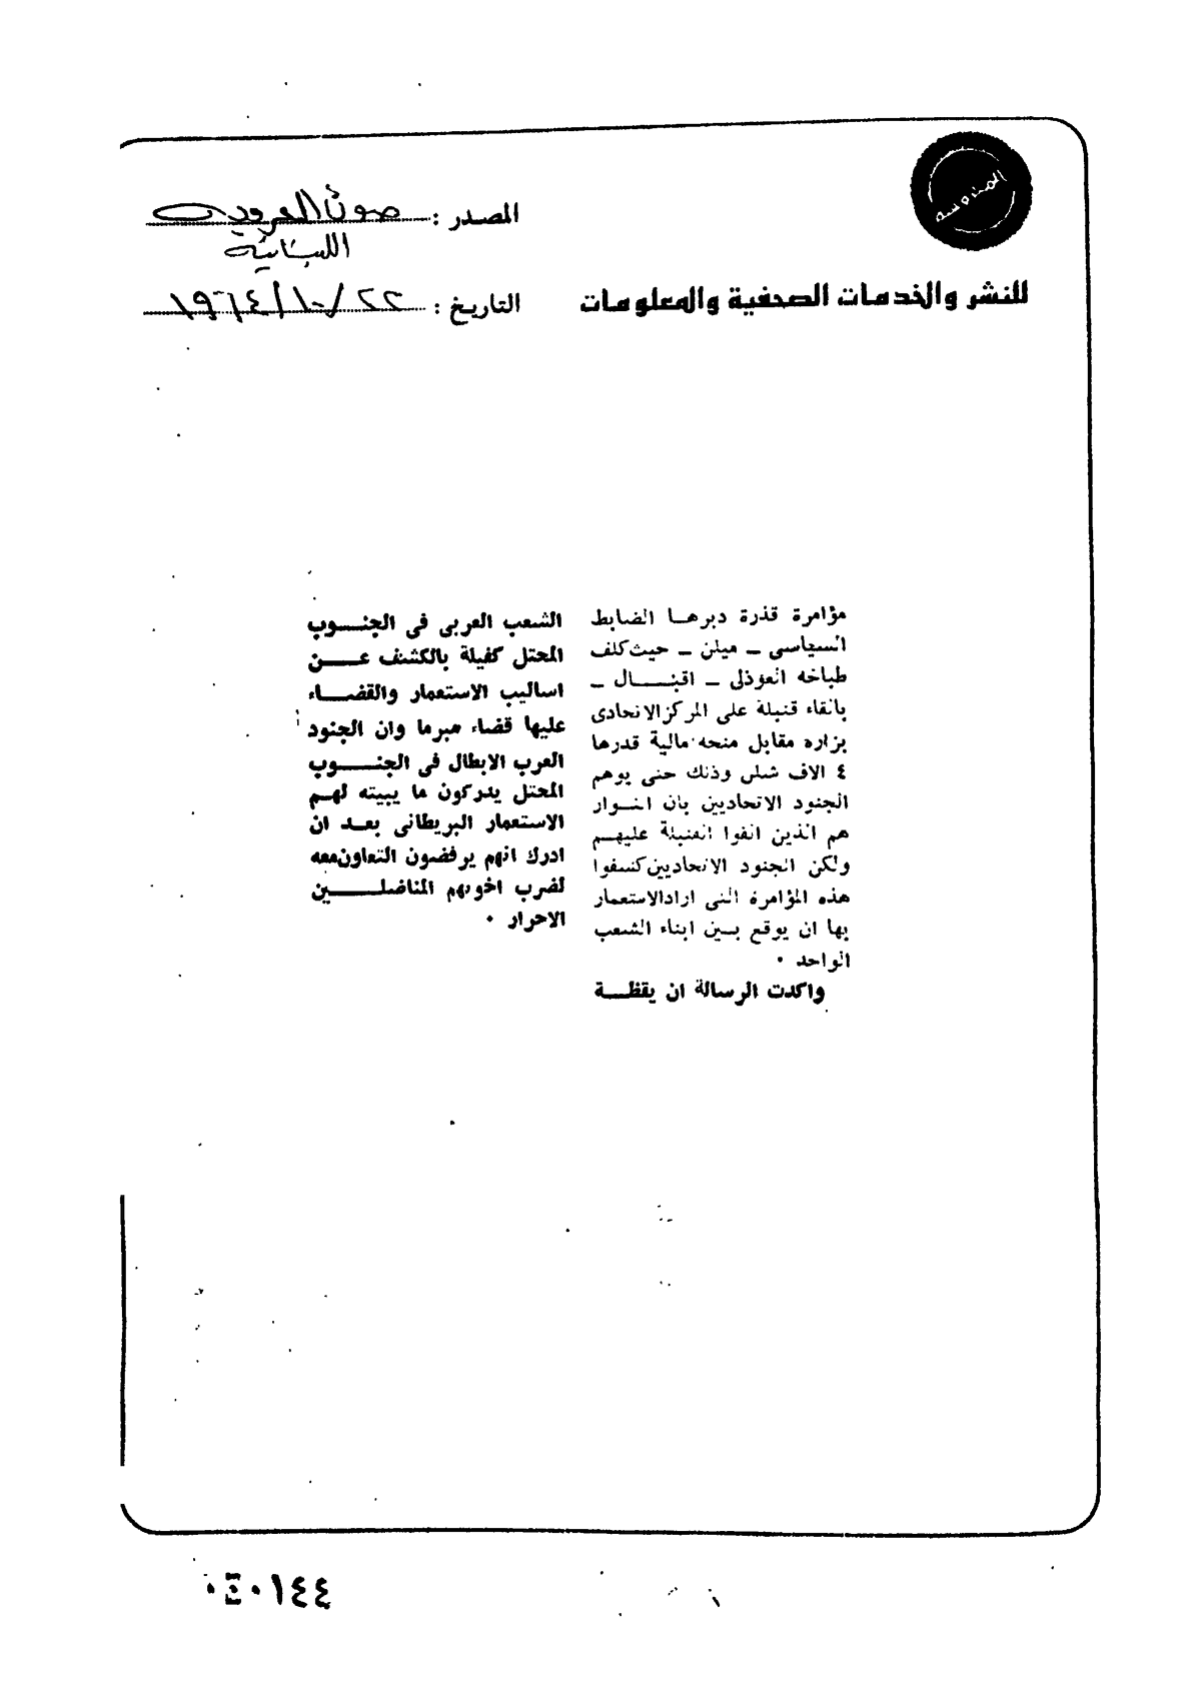 المحروسة
المصدر : صوت العروبة
اللبنانية
للنشر والخدمات الصحفية والمعلومات
التاريخ : ٢٢/١٠/١٩٦٤
مؤامرة قذرة دبرهـا الضابط
السياسى ـ ميلن ـ حيث كلف
طباخه العوذلى ـ اقبـــال ـ
بالقاء قنبلة على المركز الاتحادى
بزاره مقابل منحه مالية قدرها
٤ الاف شلن وذلك حتى يوهم
الجنود الاتحاديين بان الثـوار
هم الذين القوا القنبلة عليهـم
ولكن الجنود الاتحاديين كشفوا
هذه المؤامرة التى اراد الاستعمار
بها ان يوقع بـين ابناء الشعب
الواحد ٠
واكدت الرسالة ان يقظـة
الشعب العربى فى الجنـــوب
المحتل كفيلة بالكشف عــــن
اساليب الاستعمار والقضـــاء
عليها قضاء مبرما وان الجنود
العرب الابطال فى الجنـــوب
المحتل يدركون ما يبيته لهـم
الاستعمار البريطانى بعـد ان
ادرك انهم يرفضون التعاون معه
لضرب اخوتهم المناضلــــين
الاحرار ٠